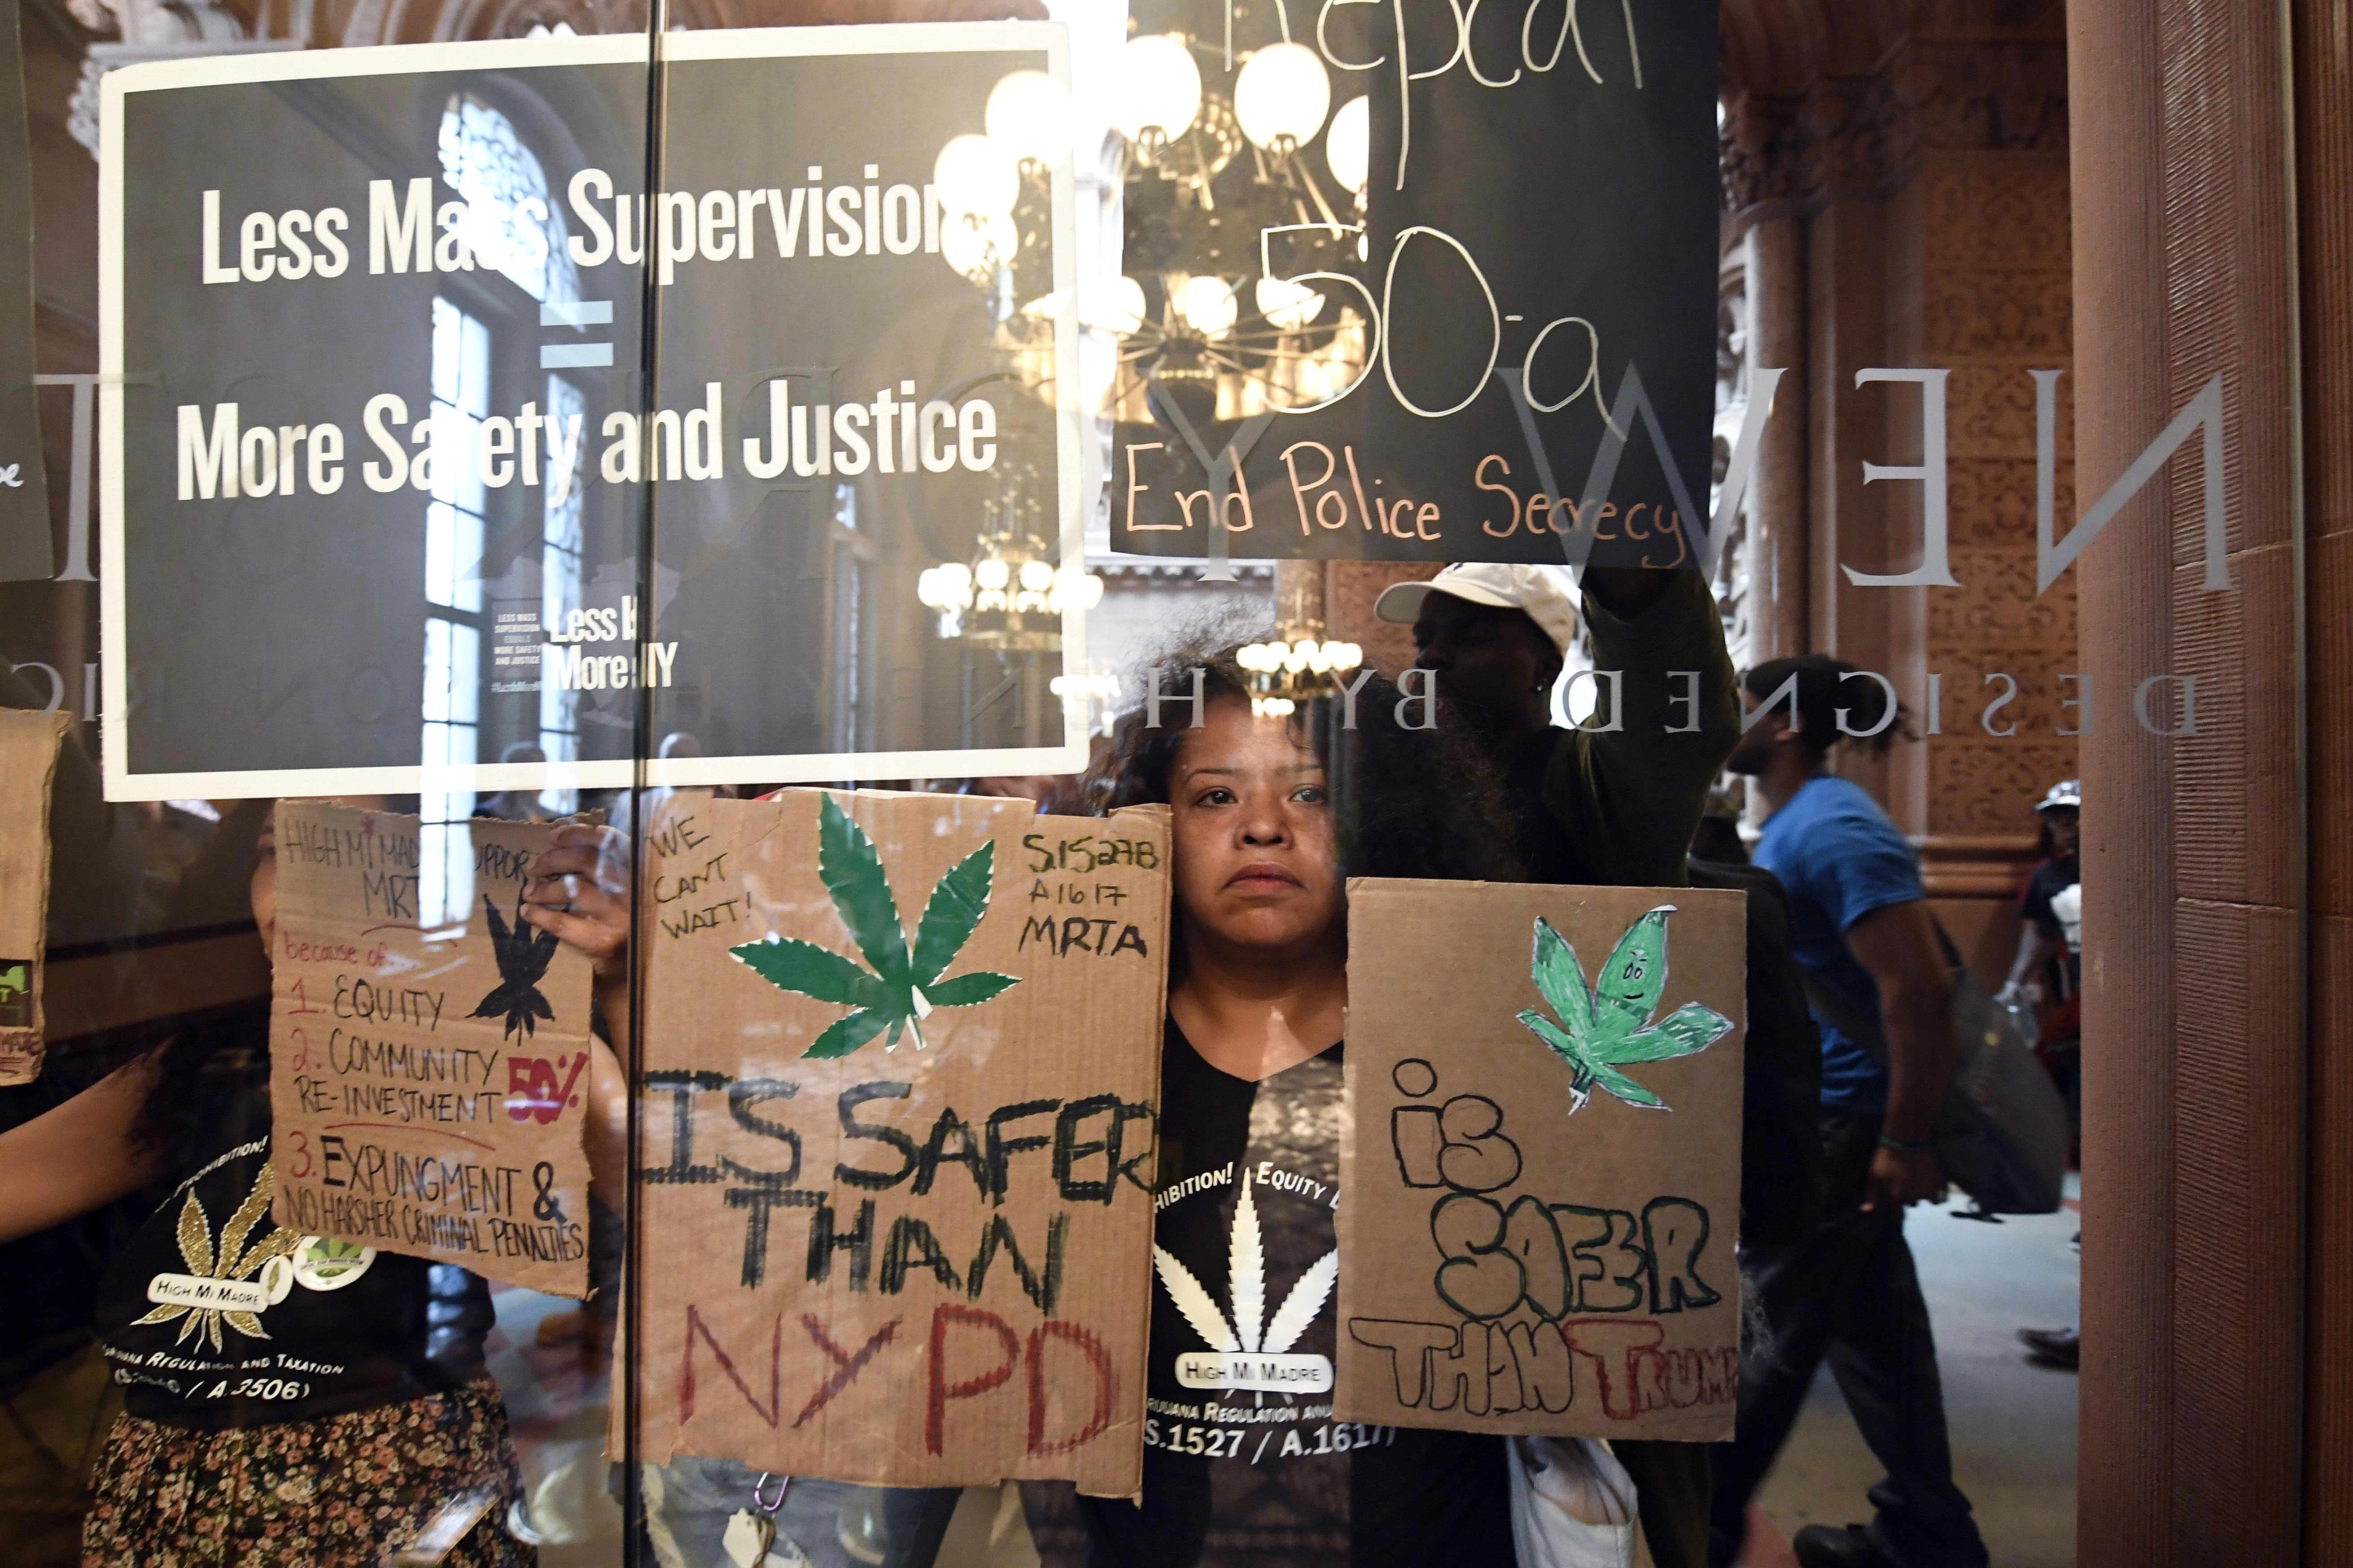 Less Mass Supervision
=
More Safety and Justice
LESS MASS
SUPERVISION
EQUALS
MORE SAFETY
AND JUSTICE
Less Is
More NY
Repeal
50-a
End Police Secrecy
NEW YORK ST
DESIGNED BY HENRY
HIGH Mi MAD UPPOR
MRT
because of...
1. EQUITY
2. COMMUNITY
RE-INVESTMENT 50%
3. EXPUNGMENT &
NO HARSHER CRIMINAL PENALTIES
WE
CANT
WAIT!
S.1527B
A1617
MRTA
IS SAFER
THAN
NYPD
iS
SAFER
THAN TRUMP
OHIBITION!
HIGH MI MADRE
REGULATION AND TAXATION
/ A.3506)
HIBITION! EQUITY
HIGH MI MADRE
UANA REGULATION AND
S.1527 / A.1617